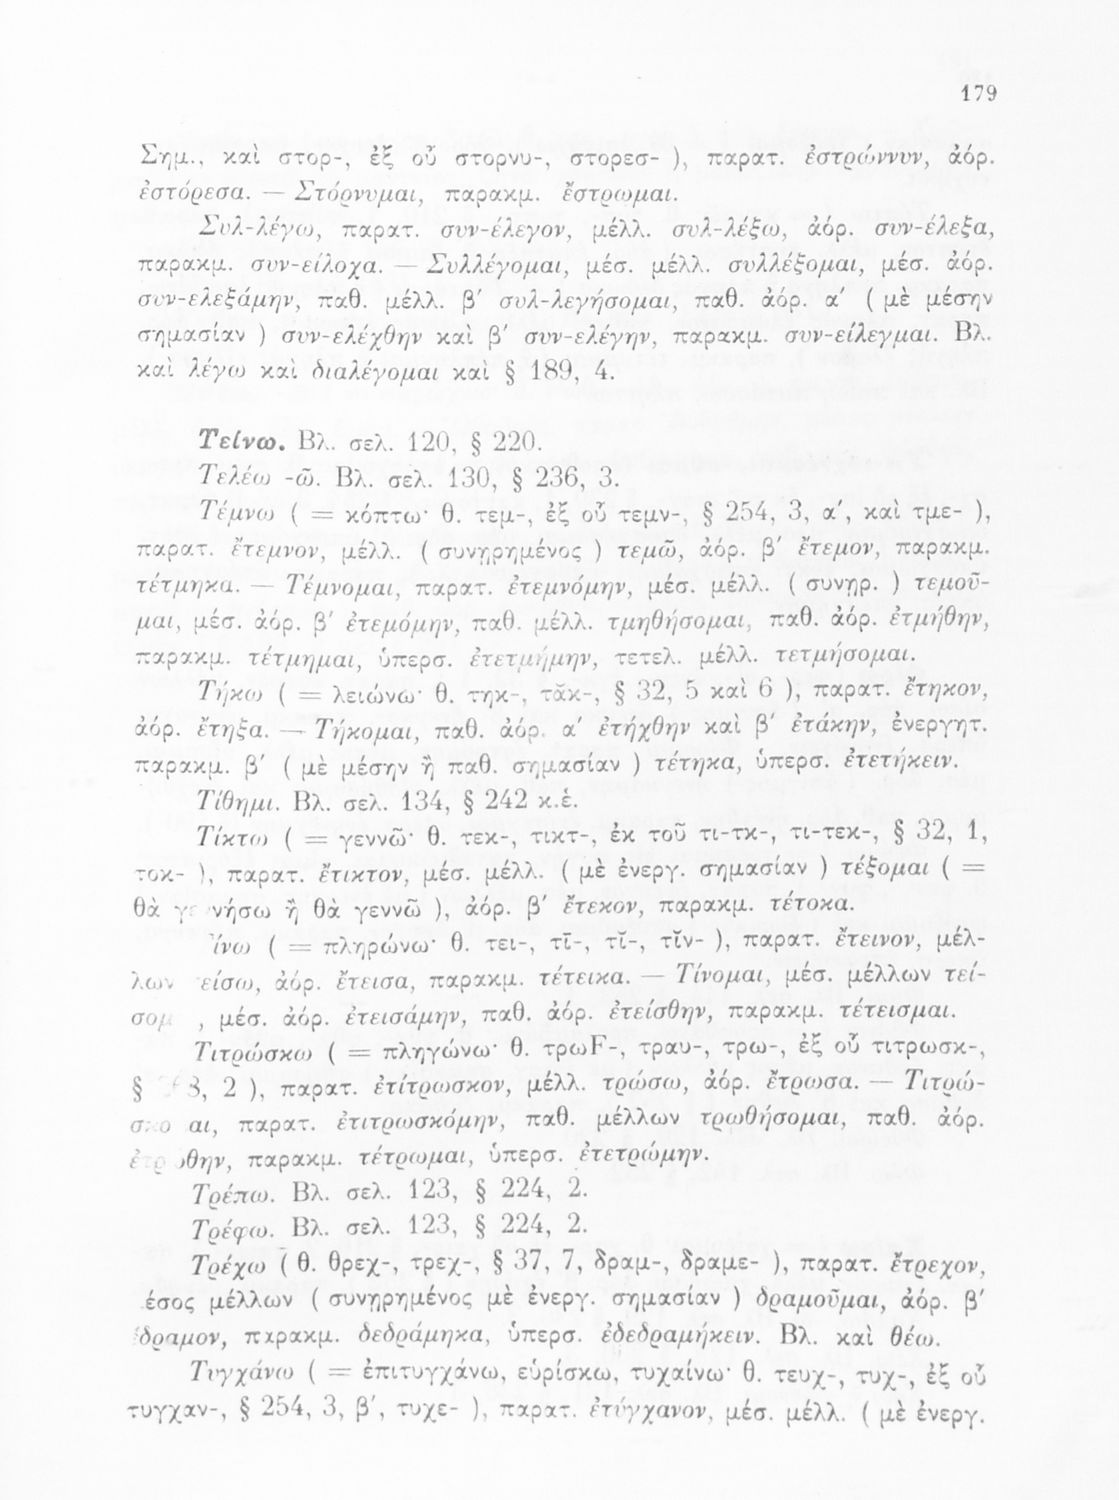 179
Σημ., καὶ στορ-, ἐξ οὗ στορνυ-, στορεσ- ), παρατ. ἐστρώννυν, ἀόρ.
ἐστόρεσα. — Στόρνυμαι, παρακμ. ἔστρωμαι.
Συλ-λέγω, παρατ. συν-έλεγον, μέλλ. συλ-λέξω, ἀόρ. συν-έλεξα,
παρακμ. συν-είλοχα. — Συλλέγομαι, μέσ. μέλλ. συλλέξομαι, μέσ. ἀόρ.
συν-ελεξάμην, παθ. μέλλ. β′ συλ-λεγήσομαι, παθ. ἀόρ. α′ ( μὲ μέσην
σημασίαν ) συν-ελέχθην καὶ β′ συν-ελέγην, παρακμ. συν-είλεγμαι. Βλ.
καὶ λέγω καὶ διαλέγομαι καὶ § 189, 4.
Τείνω. Βλ. σελ. 120, § 220.
Τελέω -ῶ. Βλ. σελ. 130, § 236, 3.
Τέμνω ( = κόπτω· θ. τεμ-, ἐξ οὗ τεμν-, § 254, 3, α′, καὶ τμε- ),
παρατ. ἔτεμνον, μέλλ. ( συνῃρημένος ) τεμῶ, ἀόρ. β′ ἔτεμον, παρακμ.
τέτμηκα. — Τέμνομαι, παρατ. ἐτεμνόμην, μέσ. μέλλ. ( συνῃρ. ) τεμοῦ-
μαι, μέσ. ἀόρ. β′ ἐτεμόμην, παθ. μέλλ. τμηθήσομαι, παθ. ἀόρ. ἐτμήθην,
παρακμ. τέτμημαι, ὑπερσ. ἐτετμήμην, τετελ. μέλλ. τετμήσομαι.
Τήκω ( = λειώνω· θ. τηκ-, τᾰκ-, § 32, 5 καὶ 6 ), παρατ. ἔτηκον,
ἀόρ. ἔτηξα. — Τήκομαι, παθ. ἀόρ. α′ ἐτήχθην καὶ β′ ἐτάκην, ἐνεργητ.
παρακμ. β′ ( μὲ μέσην ἢ παθ. σημασίαν ) τέτηκα, ὑπερσ. ἐτετήκειν.
Τίθημι. Βλ. σελ. 134, § 242 κ.ἑ.
Τίκτω ( = γεννῶ· θ. τεκ-, τικτ-, ἐκ τοῦ τι-τκ-, τι-τεκ-, § 32, 1,
τοκ- ), παρατ. ἔτικτον, μέσ. μέλλ. ( μὲ ἐνεργ. σημασίαν ) τέξομαι ( =
θὰ γεννήσω ἢ θὰ γεννῶ ), ἀόρ. β′ ἔτεκον, παρακμ. τέτοκα.
ίνω ( = πληρώνω· θ. τει-, τῑ-, τῐ-, τῐν- ), παρατ. ἔτεινον, μέλ-
λων είσω, ἀόρ. ἔτεισα, παρακμ. τέτεικα. — Τίνομαι, μέσ. μέλλων τεί-
σομ , μέσ. ἀόρ. ἐτεισάμην, παθ. ἀόρ. ἐτείσθην, παρακμ. τέτεισμαι.
Τιτρώσκω ( = πληγώνω· θ. τρωF-, τραυ-, τρω-, ἐξ οὗ τιτρωσκ-,
§ 3, 2 ), παρατ. ἐτίτρωσκον, μέλλ. τρώσω, ἀόρ. ἔτρωσα. — Τιτρώ-
σκο αι, παρατ. ἐτιτρωσκόμην, παθ. μέλλων τρωθήσομαι, παθ. ἀόρ.
ἐτρώθην, παρακμ. τέτρωμαι, ὑπερσ. ἐτετρώμην.
Τρέπω. Βλ. σελ. 123, § 224, 2.
Τρέφω. Βλ. σελ. 123, § 224, 2.
Τρέχω ( θ. θρεχ-, τρεχ-, § 37, 7, δραμ-, δραμε- ), παρατ. ἔτρεχον,
έσος μέλλων ( συνῃρημένος μὲ ἐνεργ. σημασίαν ) δραμοῦμαι, ἀόρ. β′
ἔδραμον, παρακμ. δεδράμηκα, ὑπερσ. ἐδεδραμήκειν. Βλ. καὶ θέω.
Τυγχάνω ( = ἐπιτυγχάνω, εὑρίσκω, τυχαίνω· θ. τευχ-, τυχ-, ἐξ οὗ
τυγχαν-, § 254, 3, β′, τυχε- ), παρατ. ἐτύγχανον, μέσ. μέλλ. ( μὲ ἐνεργ.